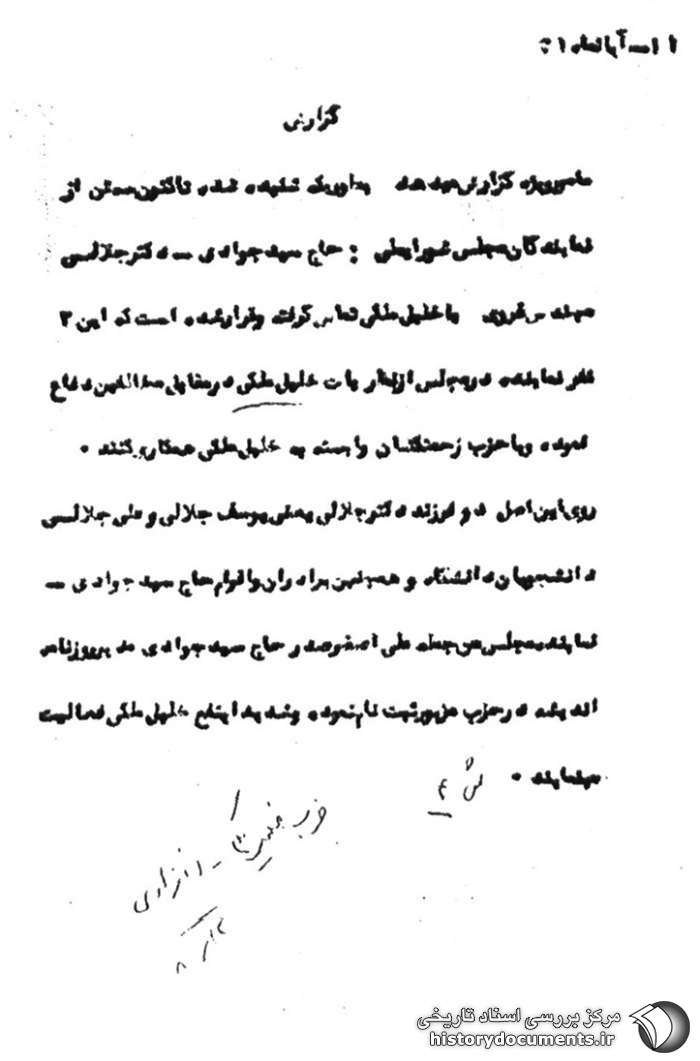 گزارش
مامور ویژه گزارش میدهد بطوریکه شنیده شده تاکنون سه تن از
نمایندگان مجلس شورایملی : حاج سید جوادی ــ دکتر جلالی
مهندس غروی با خلیل ملکی تماس گرفته و قرار شده است که این ۳
نفر نماینده در مجلس از نظریات خلیل ملکی در مقابل مخالفین دفاع
نموده و با حزب زحمتکشان وابسته به خلیل ملکی همکاری کنند .
روی این اصل دو فرزند دکتر جلالی یعنی یوسف جلالی و علی جلالی
دانشجویان دانشگاه و همچنین برادران و اقوام حاج سید جوادی ــ
نماینده مجلس من جمله علی اصغر صدر حاج سید جوادی مدیر روزنامه
اندیشه در حزب مزبور ثبت نام نموده و شدیدا بنفع خلیل ملکی فعالیت
مینمایند .
حزب
مرکز بررسی اسناد تاریخی
historydocuments.ir